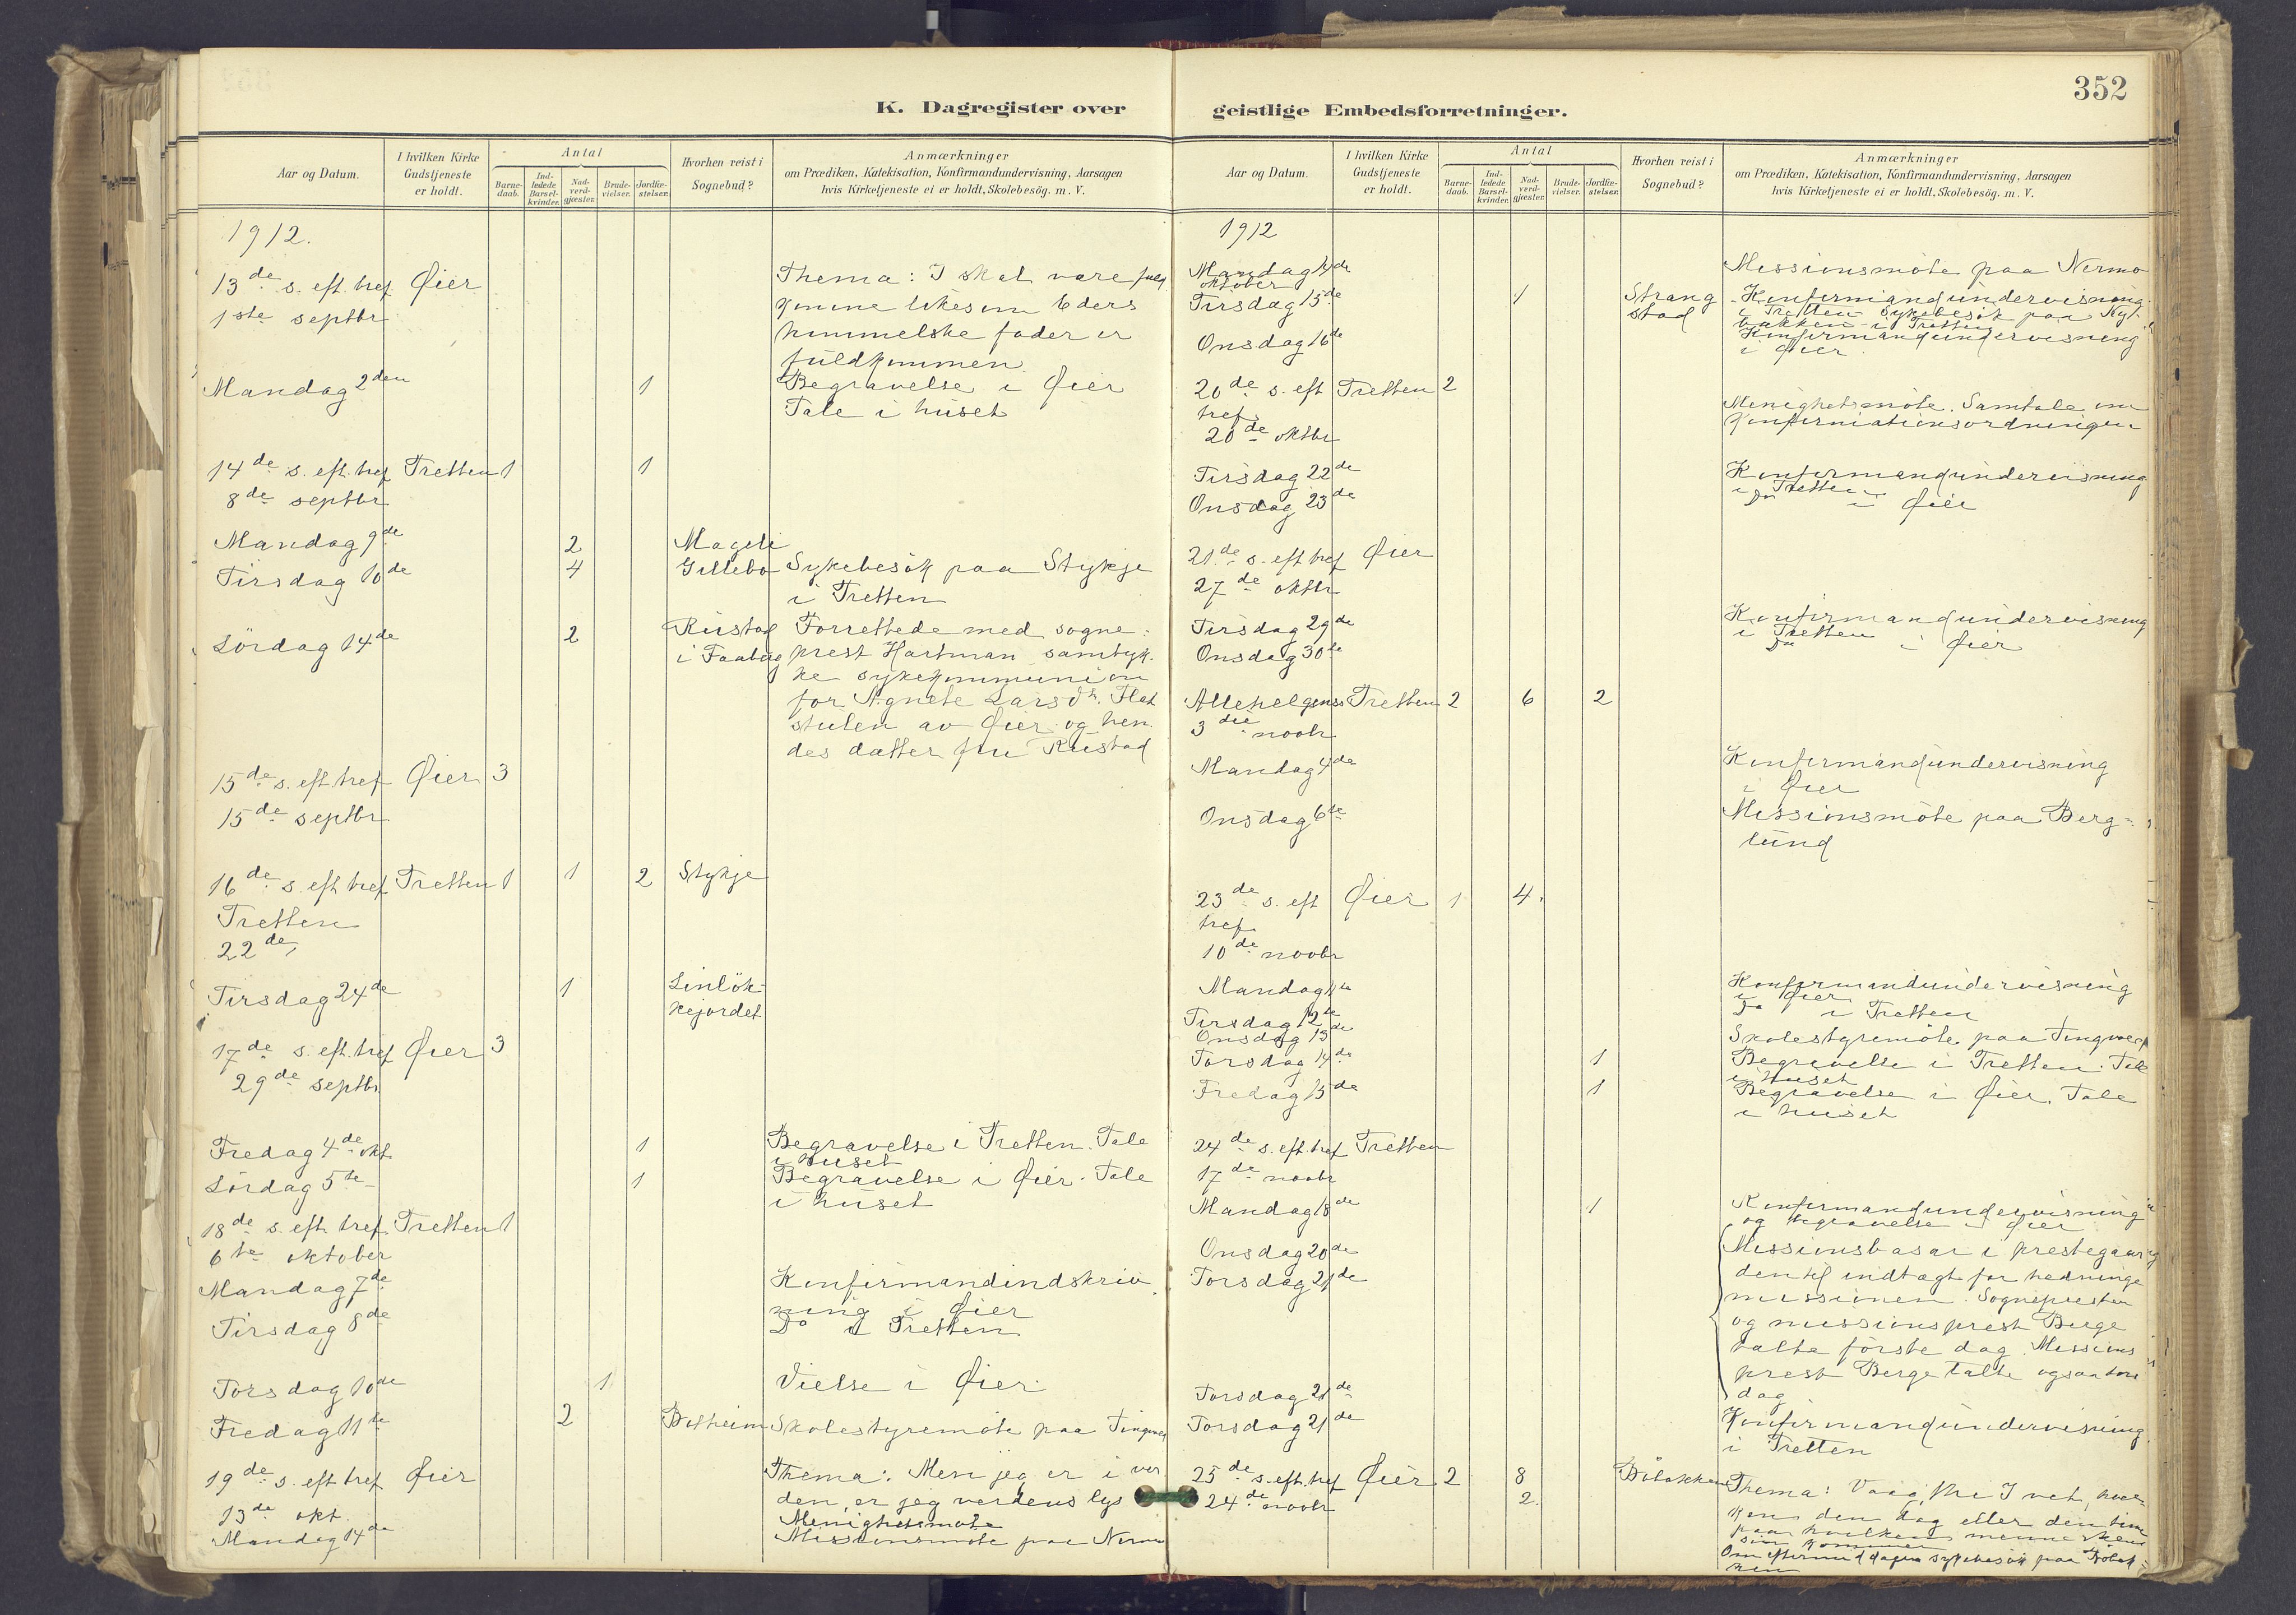 352
K. Dagregister over geistlige Embedsforretninger.
Aar og Datum.
I hvilken Kirke Gudstjeneste er holdt.
Antal
Barne-daab.
Ind-ledede Barsel-kvinder.
Nad-verd-gjæster.
Brude-vielser.
Jordfæ-stelser.
Hvorhen reist i Sognebud?
Anmærkninger
om Prædiken, Katekisation, Konfirmandundervisning, Aarsagen
hvis Kirketjeneste ei er holdt, Skolebesög. m. V.
1912.
13de s. eft. tref Øier Thema: I skal være
1ste septbr komne likesom Eders
himmelske fader er
fuldkommen
Mandag 2den 1 Begravelse i Øier
Tale i huset
14de s. eft. tref Tretten 1 1
8de septbr
Mandag 9de 2 Mageli
Tirsdag 10de 4 Gillebo Sykebesök paa Stykje
i Tretten
Lördag 14de 2 Rustad Forrettede med sogne-
i Faaberg prest Hartman samtyk-
ke sykekommunion
for Agnete Larsdtr. Flat
stulen av Øier og hen
des datter fru Rustad
15de s. eft tref Øier 3
15de septbr
16de s. eft tref Tretten 1 1 2 Stykje
Tretten
22de
Tirsdag 24de 1 Linlök-
kejordet
17de s. eft. tref Øier 3
29de septbr
Fredag 4de okt. 1 Begravelse i Tretten. Tale
i huset
Lördag 5te 1 Begravelse i Øier. Tale
i huset
18de s. eft tref Tretten 1
6te oktober
Mandag 7de Konfirmandindskriv
ning i Øier
Tirsdag 8de Do i Tretten
Torsdag 10de 1 Vielse i Øier
Fredag 11te 2 Botheim Skolestyremöte paa
19de s. eft tref Øier Thema: Men jeg er i ver
den, er jeg verdens lys
13de okt. Menighetsmöte
Mandag 14de Missionsmöte paa
Aar og Datum.
I hvilken Kirke Gudstjeneste er holdt.
Antal
Barne-daab.
Ind-ledede Barsel-kvinder.
Nad-verd-gjæster.
Brude-vielser.
Jordfæ-stelser.
Hvorhen reist i Sognebud?
Anmærkninger
om Prædiken, Katekisation, Konfirmandundervisning, Aarsagen
hvis Kirketjeneste ei er holdt, Skolebesög. m. V.
1912
Mandag 14de Missionsmöte paa Nermo
oktober
Tirsdag 15de 1 Strang Konfirmandundervisning
stad i Tretten Sykebesök paa
bakken i Tretten
Onsdag 16de Konfirmandundervisning
i Øier
20de s. eft Tretten 2
tref. Menighetsmöte. Samtale om
20de oktbr Konfirmationsordningen
Tirsdag 22de Konfirmandundervisning
i Tretten
Onsdag 23de Do i Øier
21de s. eft tref Øier
27de oktbr
Tirsdag 29de Konfirmandundervisning
i Tretten
Onsdag 30te Do i Øier
Allehelgens Tretten 2 6 2
3die novbr
Mandag 4de Konfirmandundervisning
i Øier
Onsdag 6te Missionsmöte paa Berg-
lund
23de s. eft Øier 1 4.
tref.
10de novbr
Mandag 11te Konfirmandundervisning
i Øier
Tirsdag 12te Do i Tretten
Onsdag 13de Skolestyremöte paa
Torsdag 14de 1 Begravelse i Tretten. Tale
i huset
Fredag 15de 1 Begravelse i Øier. Tale
i huset
24de s. eft. tref Tretten
17de novbr
Mandag 18de 1 Konfirmandundervisning
og begravelse i Øier
Onsdag 20de Missionsbasar i prestegaar
Torsdag 21de den til indtægt for hedninge
missionen. Sognepresten
og missionsprest Berge
talte förste dag. Missions
prest Berge talte ogsaa
Torsdag 21de dag
Torsdag 21de Konfirmandundervisning
i Tretten
25de s. eft. tref Øier 2 8 Bölokken Thema: Vaag, thi I vet
24de novbr 2. den dag eller den time
paa hvilken menneskens
sön kommer
Om eftermiddagen sykebesök paa Bölok-
ken